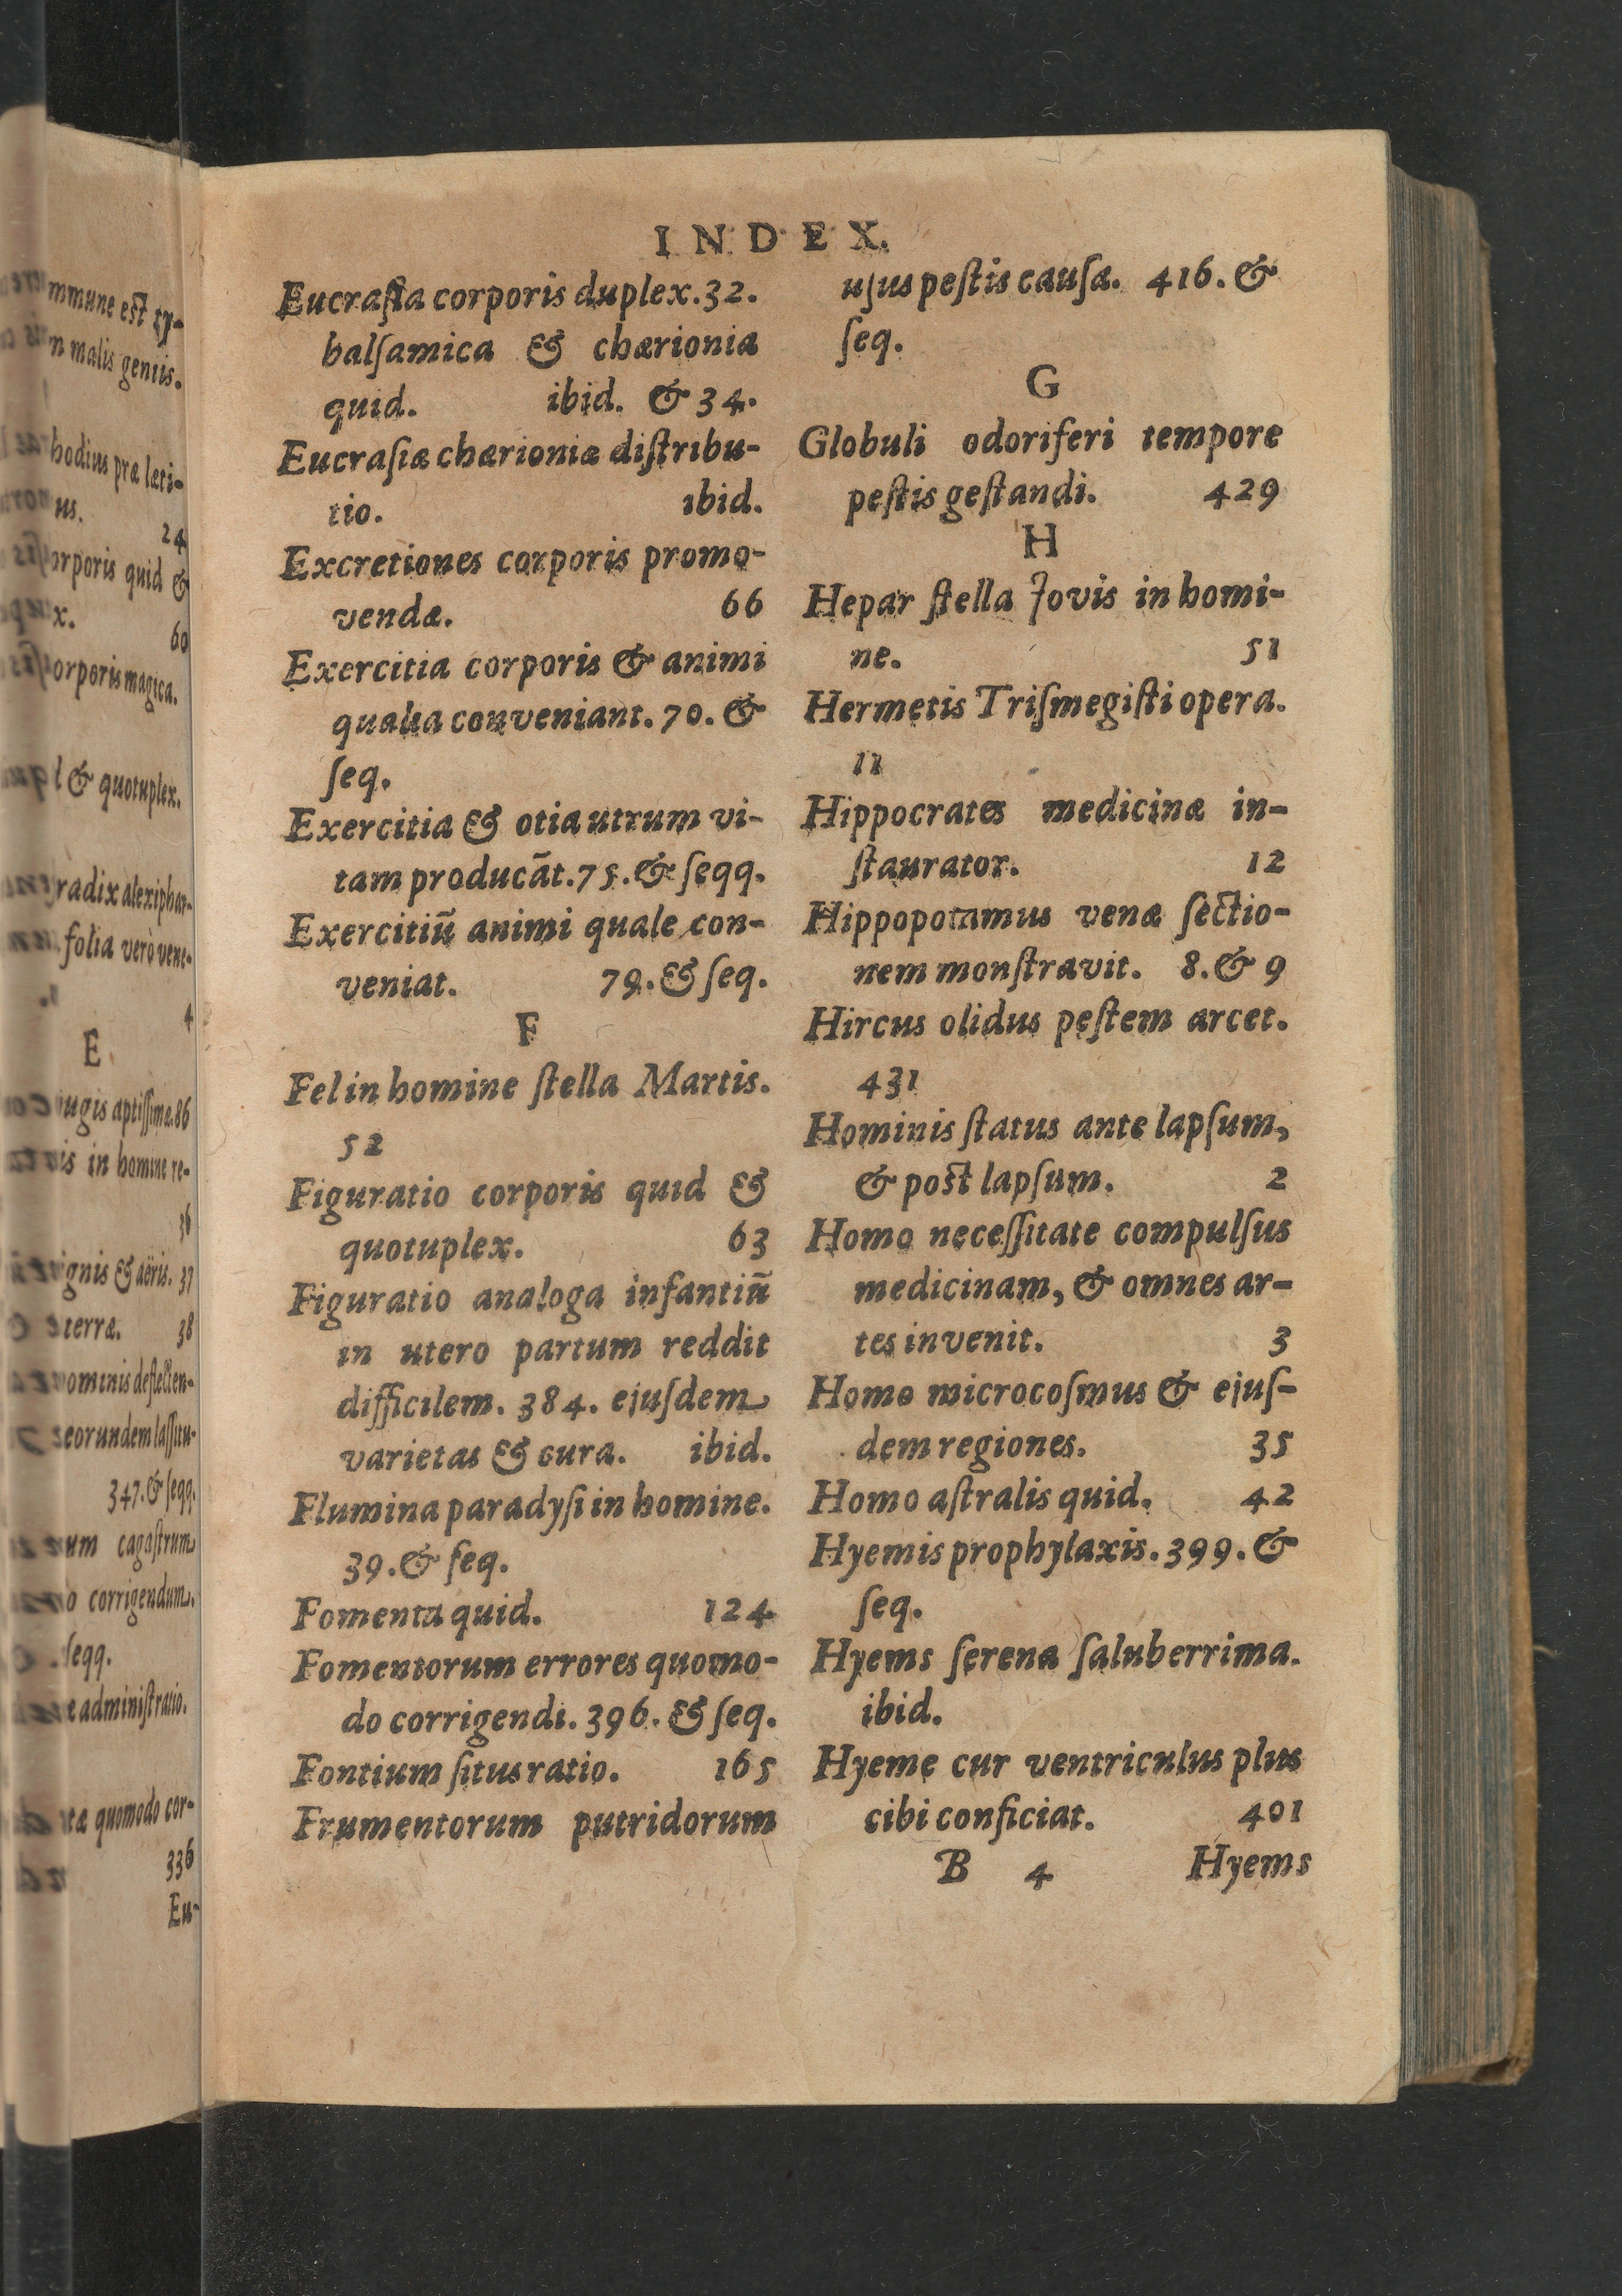 mmune est ty-
n malis geniis.
hodius præ læti-
us.
24
orporis quid &
x.
60
orporis magica.
l & quotuplex.
radix alexiphar-
folia verò vene-
4
E.
iugis aptiſſime.86
is in homine re-
36
ignis & aëris. 37
terræ. 38
ominis deflecten-
eorundem laſſitu-
347. & ſeqq.
um cagaſtrum
o corrigendum.
ſeqq.
e adminiſtratio.
tæ quomodo cor-
336
Eu-
INDEX.
Eucraſia corporis duplex.32.
balſamica & chærionia
quid. ibid. & 34.
Eucraſiæ chærioniæ diſtribu-
tio. ibid.
Excretiones corporis promo-
vendæ. 66
Exercitia corporis & animi
qualia conveniant. 70. &
ſeq.
Exercitia & otia utrum vi-
tam producāt.75. & ſeqq.
Exercitiū animi quale con-
veniat. 79. & ſeq.
F
Fel in homine ſtella Martis.
52
Figuratio corporis quid &
quotuplex. 63
Figuratio analoga infantiū
in utero partum reddit
difficilem. 384. ejuſdem
varietas & cura. ibid.
Flumina paradyſi in homine.
39. & ſeq.
Fomenta quid. 124
Fomentorum errores quomo-
do corrigendi. 396. & ſeq.
Fontium ſitus ratio. 165
Frumentorum putridorum
uſus peſtis cauſa. 416. &
ſeq.
G
Globuli odoriferi tempore
peſtis geſtandi. 429
H
Hepar ſtella Jovis in homi-
ne. 51
Hermetis Triſmegiſti opera.
11
Hippocrates medicinæ in-
ſtaurator. 12
Hippopotamus venæ ſectio-
nem monſtravit. 8. & 9
Hircus olidus peſtem arcet.
431
Hominis ſtatus ante lapſum,
& post lapſum. 2
Homo neceſſitate compulſus
medicinam, & omnes ar-
tes invenit. 3
Homo microcoſmus & ejuſ-
dem regiones. 35
Homo aſtralis quid. 42
Hyemis prophylaxis. 399. &
ſeq.
Hyems ſerena ſaluberrima.
ibid.
Hyeme cur ventriculus plus
cibi conficiat. 401
B 4 Hyems